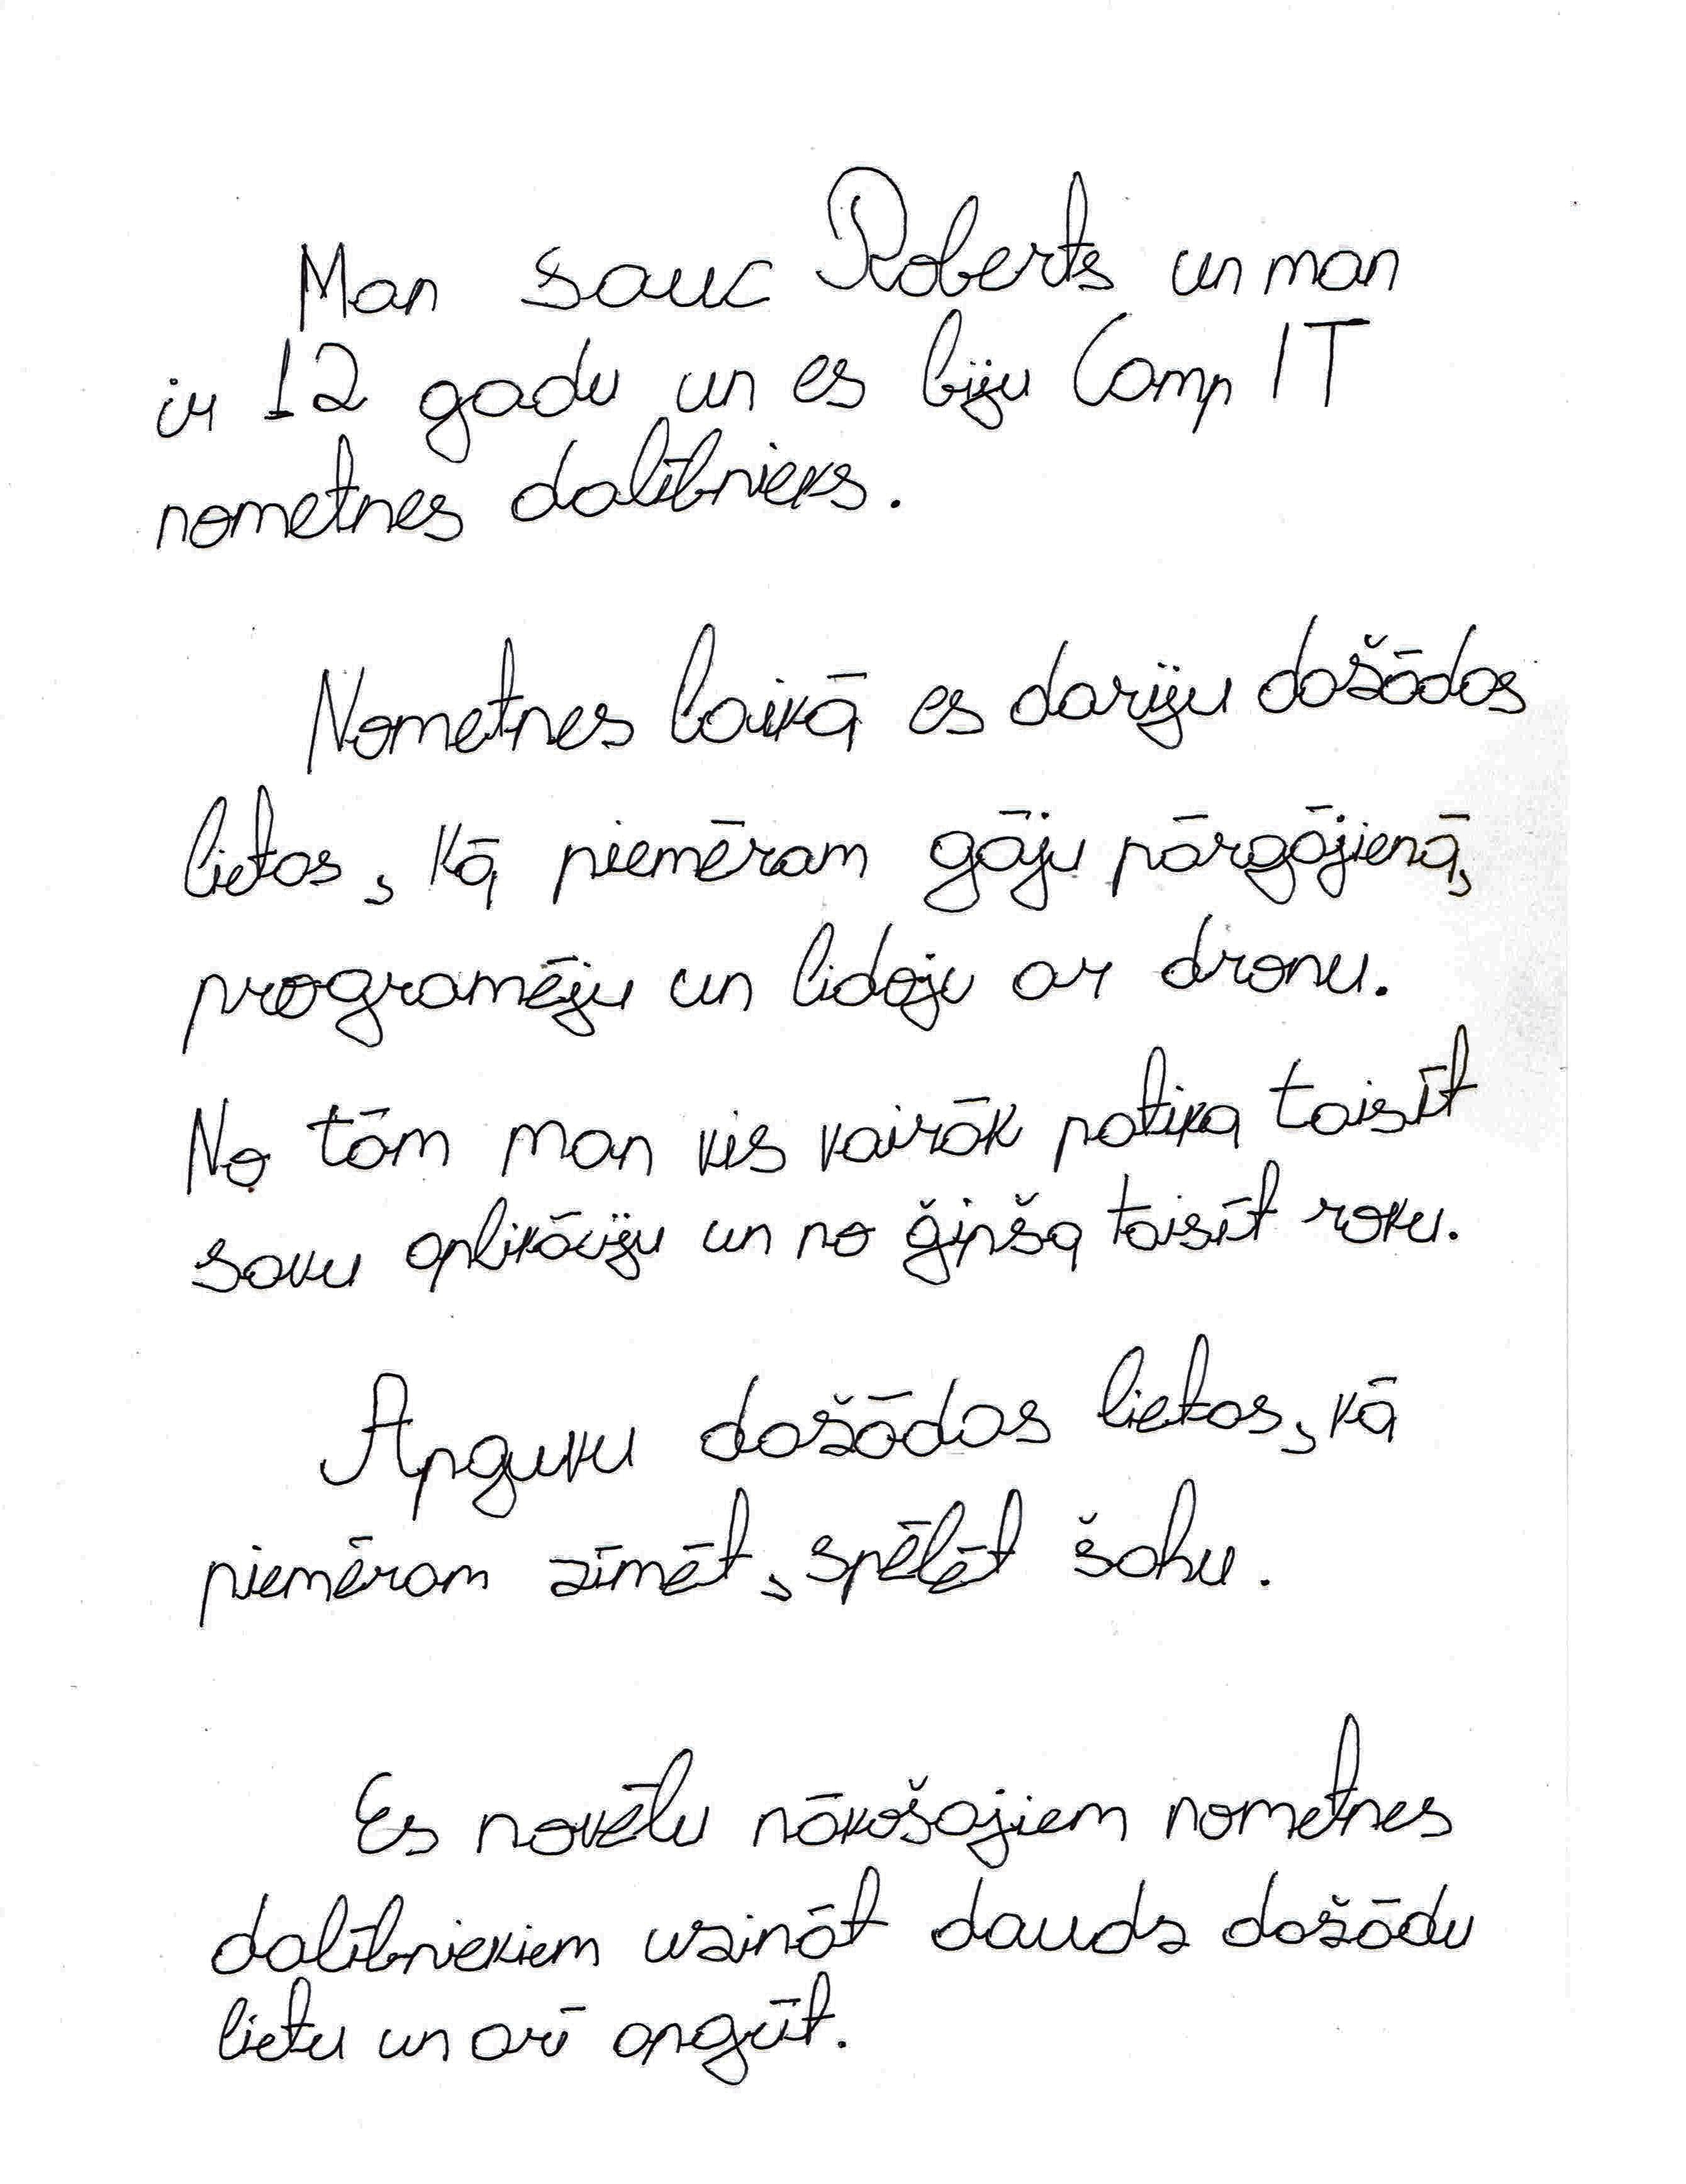 Man sauc Roberts un man
ir 12 gadu un es biju Camp IT
nometnes dalībnieks.
Nometnes laikā es dariju dašādas
lietas, kā piemēram gāju pārgājienā,
programēju un lidoju ar dronu.
No tām man vis vairāk patika taisīt
savu aplikāciju un no ģipša taisīt roku.
Apguvu dašādas lietas, kā
piemēram zīmēt, spēlēt šahu.
Es novēlu nākošajiem nometnes
dalībniekiem uzināt daudz dašādu
lietu un arī apgūt.